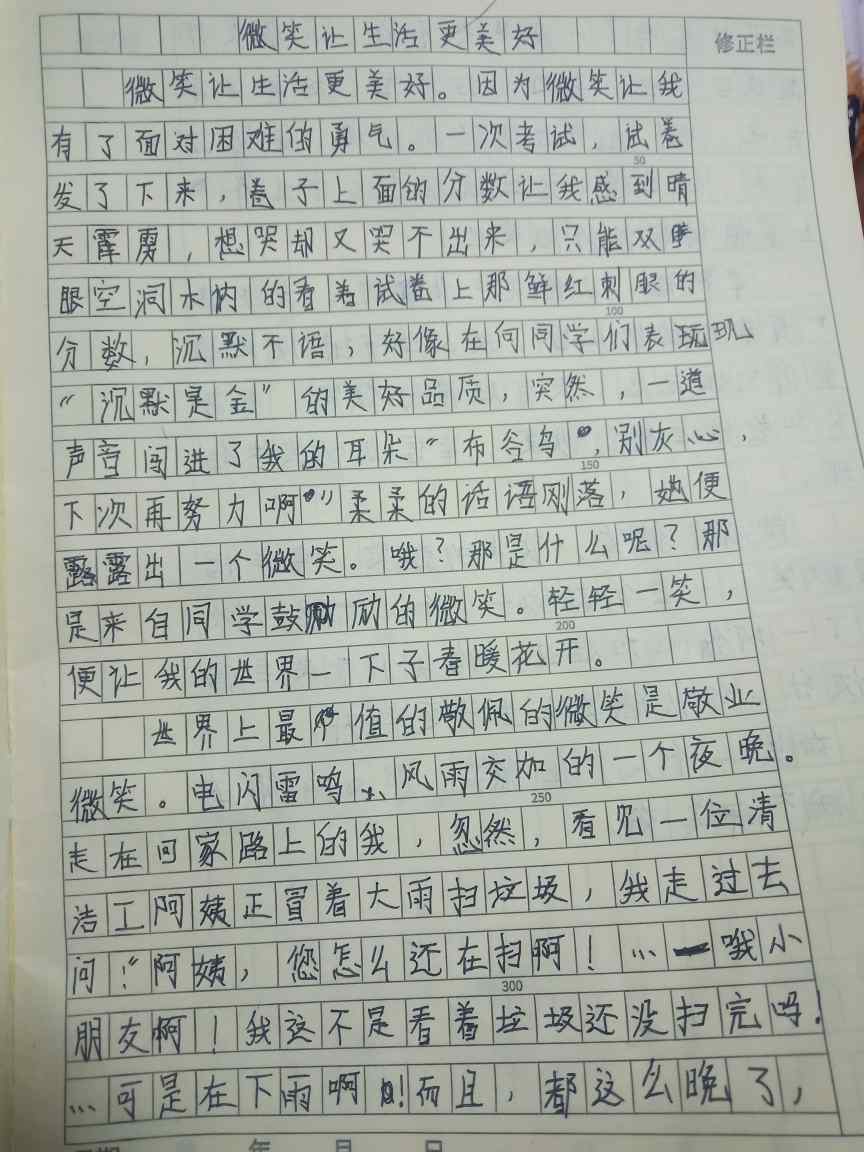 微笑让生活更美好
修正栏
微笑让生活更美好。因为微笑让我
有了面对困难的勇气。一次考试，试卷
50
发了下来，卷子上面的分数让我感到晴
天霹雳，想哭却又哭不出来，只能双
眼空洞木讷的看着试卷上那鲜红刺眼的
100
分数，沉默不语，好像在向同学们表玩现
“沉默是金”的美好品质，突然，一道
声音闯进了我的耳朵“布谷鸟，别灰心，
150
下次再努力啊”柔柔的话语刚落，她便
露出一个微笑。哦？那是什么呢？那
是来自同学鼓励的微笑。轻轻一笑，
200
便让我的世界一下子春暖花开。
世界上最值的敬佩的微笑是敬业
微笑。电闪雷鸣、风雨交加的一个夜晚。
250
走在回家路上的我，忽然，看见一位清
洁工阿姨正冒着大雨扫垃圾，我走过去
问：“阿姨，您怎么还在扫啊！…哦小
300
朋友啊！我这不是看着垃圾还没扫完吗！
…可是在下雨啊！而且，都这么晚了，
年 月 日